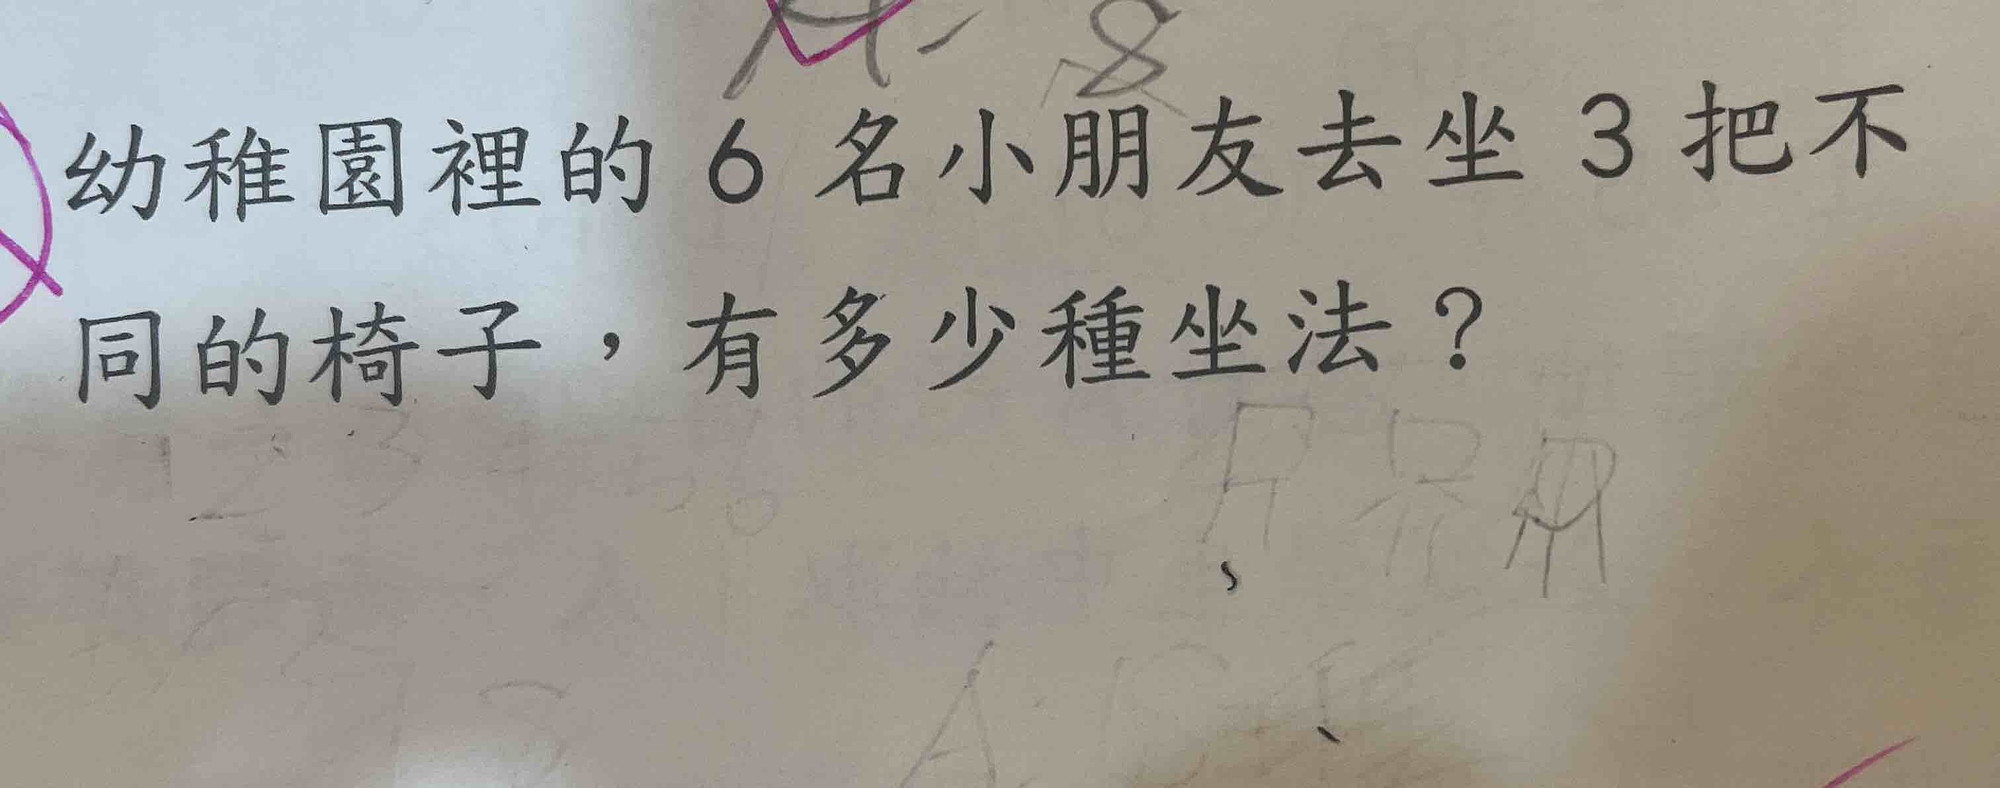 8
幼稚園裡的 6 名小朋友去坐 3 把不
同的椅子，有多少種坐法？
1 2 3 6
A